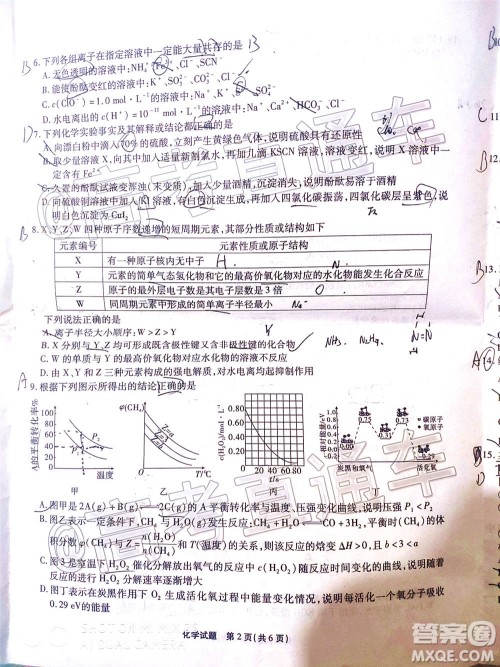 B 6. 下列各组离子在指定溶液中一定能大量共存的是 B
A. 无色透明的溶液中：NH₄⁺、Fe²⁺、Cl⁻、SCN⁻
B. 能使酚酞变红的溶液中：K⁺、SO₄²⁻、CO₃²⁻、Cl⁻
C. c(ClO⁻)=1.0 mol·L⁻¹的溶液中：Na⁺、K⁺、
D. 水电离出的c(H⁺)= mol·L⁻¹的溶液中：Na⁺、Ca²⁺、HCO₃⁻、Cl⁻
D 7. 下列化学实验事实及其解释或结论都正确的是
A. 向漂白粉中滴入70%的硫酸，立刻产生黄绿色气体，说明硫酸具有还原性
B. 取少量溶液X，向其中加入适量新制氯水，再加几滴KSCN溶液，溶液变红，说明X溶液中一
定含有Fe²⁺
C. 久置的酚酞试液变浑浊（未变质），加入少量酒精，沉淀消失，说明酚酞易溶于酒精
D. 向硫酸铜溶液中加入KI溶液，有白色沉淀生成，再加入四氯化碳振荡，四氯化碳层呈紫色，说
明白色沉淀可能为CuI₂
B 8. X、Y、Z、W四种原子序数递增的短周期元素，其部分性质或结构如下
元素编号 元素性质或原子结构
X 有一种原子核内无中子 H
Y 元素的简单气态氢化物和它的最高价氧化物对应的水化物能发生化合反应
Z 原子的最外层电子数是其电子层数的3倍 O
W 同周期元素中形成的简单离子半径最小
下列说法正确的是
A. 离子半径大小顺序：W＞Z＞Y
B. X分别与Y、Z均可形成既含极性键又含非极性键的化合物
C. W的单质与Y的最高价氧化物对应水化物的溶液不反应
D. 由X、Y和Z三种元素构成的强电解质，对水电离均起抑制作用
A 9. 根据下列图示所得出的结论正确的是
A的平衡转化率/%
P₂
温度
甲
φ(CH₄)
T/℃
乙
c(H₂O₂)/mol·L⁻¹
0.80
0.60
0.40
0.20
0.00
0 20 40 60 80
t/s
丙
相对能量/eV
0.75 0.73
0.31
碳原子
氧原子
炭黑和氧气 活化氧
丁
A. 图甲是2A(g)+B(g)⇌2C(g)的A平衡转化率与温度、压强变化曲线，说明压强P₁<P₂
B. 图乙表示一定条件下，CH₄与H₂O(g)发生反应：CH₄+H₂O⇌CO+3H₂，平衡时CH₄的体
积分数φ(CH₄)与Z=n(H₂O)/n(CH₄)和T（温度）的关系，则该反应的焓变ΔH>0，且b<3<a
C. 图3室温下用某催化剂催化分解放出氧气的反应中c(H₂O₂)随反应时间变化的曲线，说明随着
反应的进行H₂O₂分解速率逐渐增大
D. 图丁表示在炭黑作用下O₂生成活化氧过程中能量变化情况，说明每活化一个氧分子吸收
0.29 eV的能量
化学试题 第2页（共6页）
高考直通车
SHOT ON MI MIX 2S
AI DUAL CAMERA
答案圈
MXQE.COM